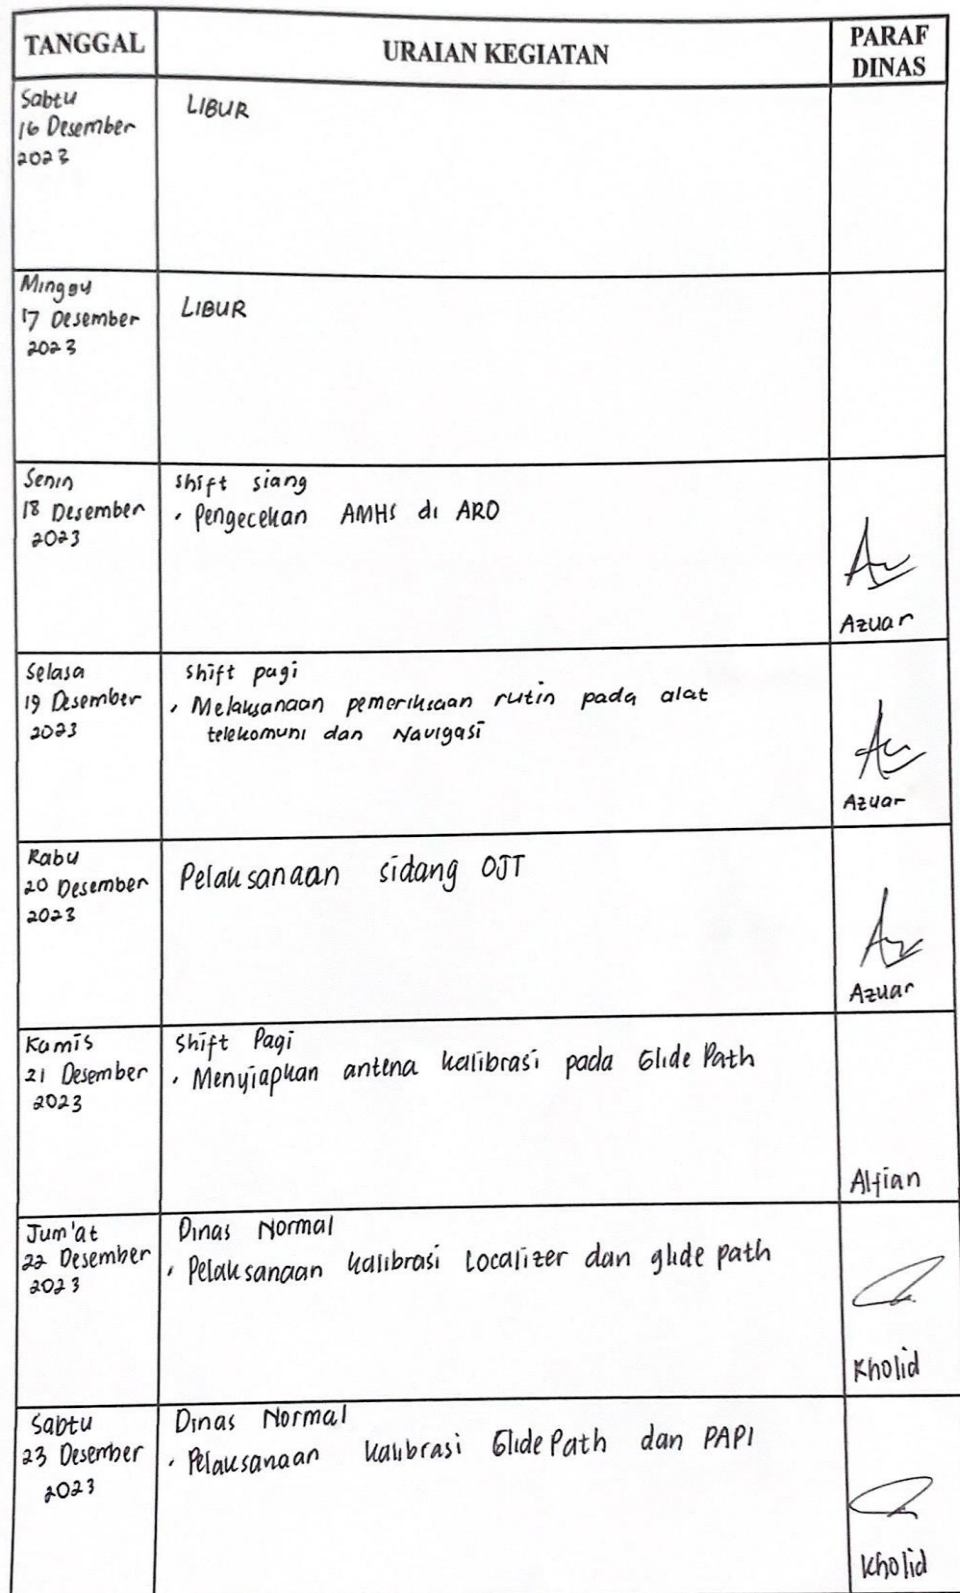 TANGGAL
URAIAN KEGIATAN
PARAF
DINAS
Sabtu
16 Desember
2023
LIBUR
Minggu
17 Desember
2023
LIBUR
Senin
18 Desember
2023
Shift siang
• Pengecekan AMHS di ARO
Azuar
Selasa
19 Desember
2023
Shift pagi
• Melaksanaan pemeriksaan rutin pada alat
telekomuni dan Navigasi
Azuar
Rabu
20 Desember
2023
Pelaksanaan sidang OJT
Azuar
Kamis
21 Desember
2023
Shift Pagi
• Menyiapkan antena kalibrasi pada Glide Path
Alfian
Jum'at
22 Desember
2023
Dinas Normal
• Pelaksanaan kalibrasi Localizer dan glide path
Kholid
Sabtu
23 Desember
2023
Dinas Normal
• Pelaksanaan kalibrasi Glide Path dan PAPI
Kholid